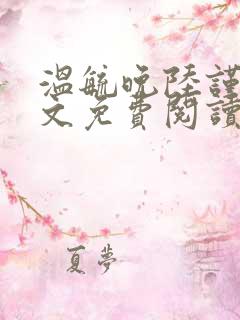 溫航晚陸謹
文免費閱讀
夏夢